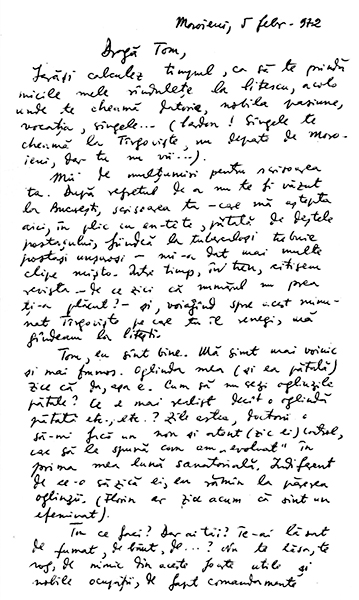 Moroieni, 5 febr. 972
Dragă Tom,
Iarăși calculez timpul, ca să te prindă
micile mele rîndulețe la Litescu, acolo
unde te cheamă datoria, nobila pasiune,
vocația, sîngele... (Ladon! Sîngele te
cheamă la Tîrgoviște, nu departe de Moro-
ieni, dar tu nu vii...).
Mii de mulțumiri pentru scrisoarea
ta. După regretul de a nu te fi văzut
la București, scrisoarea ta - care mă aștepta
aici, în plic cu en-tête, pătată de deștele
poștașului, fiindcă la tuberculoși trebuie
poștași unsuroși - mi-a dat mai multe
clipe mișto. Între timp, în tren, citisem
revista - de ce zici că numărul nu prea
ți-a plăcut? - și, voiajînd spre acest minu-
nat Tîrgoviște pe care tu îl renegi, mă
gîndeam la Litești.
Tom, eu sînt bine. Mă simt mai voinic
și mai frumos. Oglinda mea (și ea pătată)
zice că da, așa e. Cum să nu vezi oglinzile
pătate? Ce e mai realist decît o oglindă
pătată etc., etc.? Zilele astea, doctorii o
să-mi facă un nou și atent (zic ei) control,
care să le spună cum am „evoluat" în
prima mea lună sanatorială. Indiferent
de ce-o să zică ei, eu rămîn la părerea
oglinzii. (Florin ar zice acum că sînt un
efeminat).
Tu ce faci? Dar ai tăi? Te-ai lăsat
de fumat, de băut, de...? Nu te lăsa, te
rog, de nimic din aceste foarte utile și
nobile ocupații, de fapt comandamente